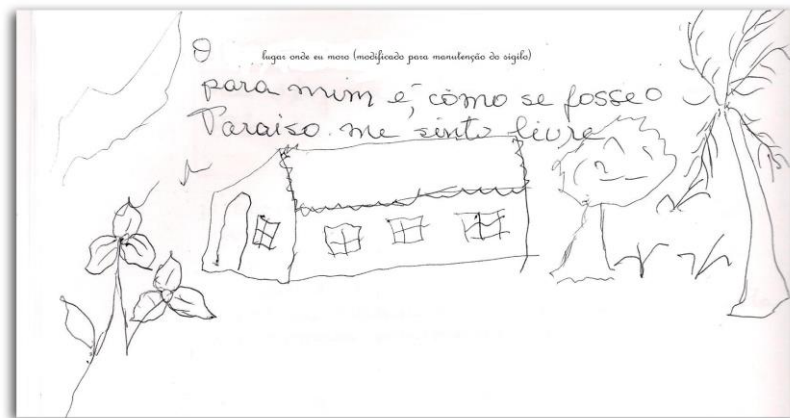 O lugar onde eu moro (modificado para manutenção do sigilo)
para mim é, como se fosse o
Paraiso. me sinto livre